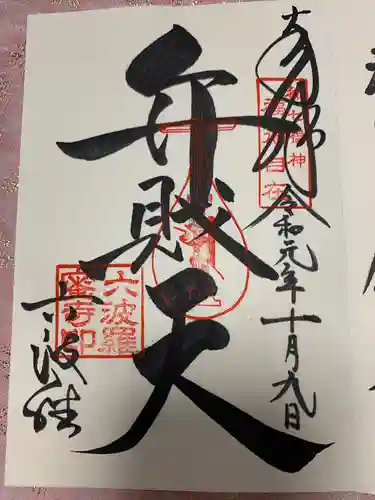 奉拝
令和元年十月九日
都七福神
福寿自在
弁財天
六波羅
六波羅
蜜寺印